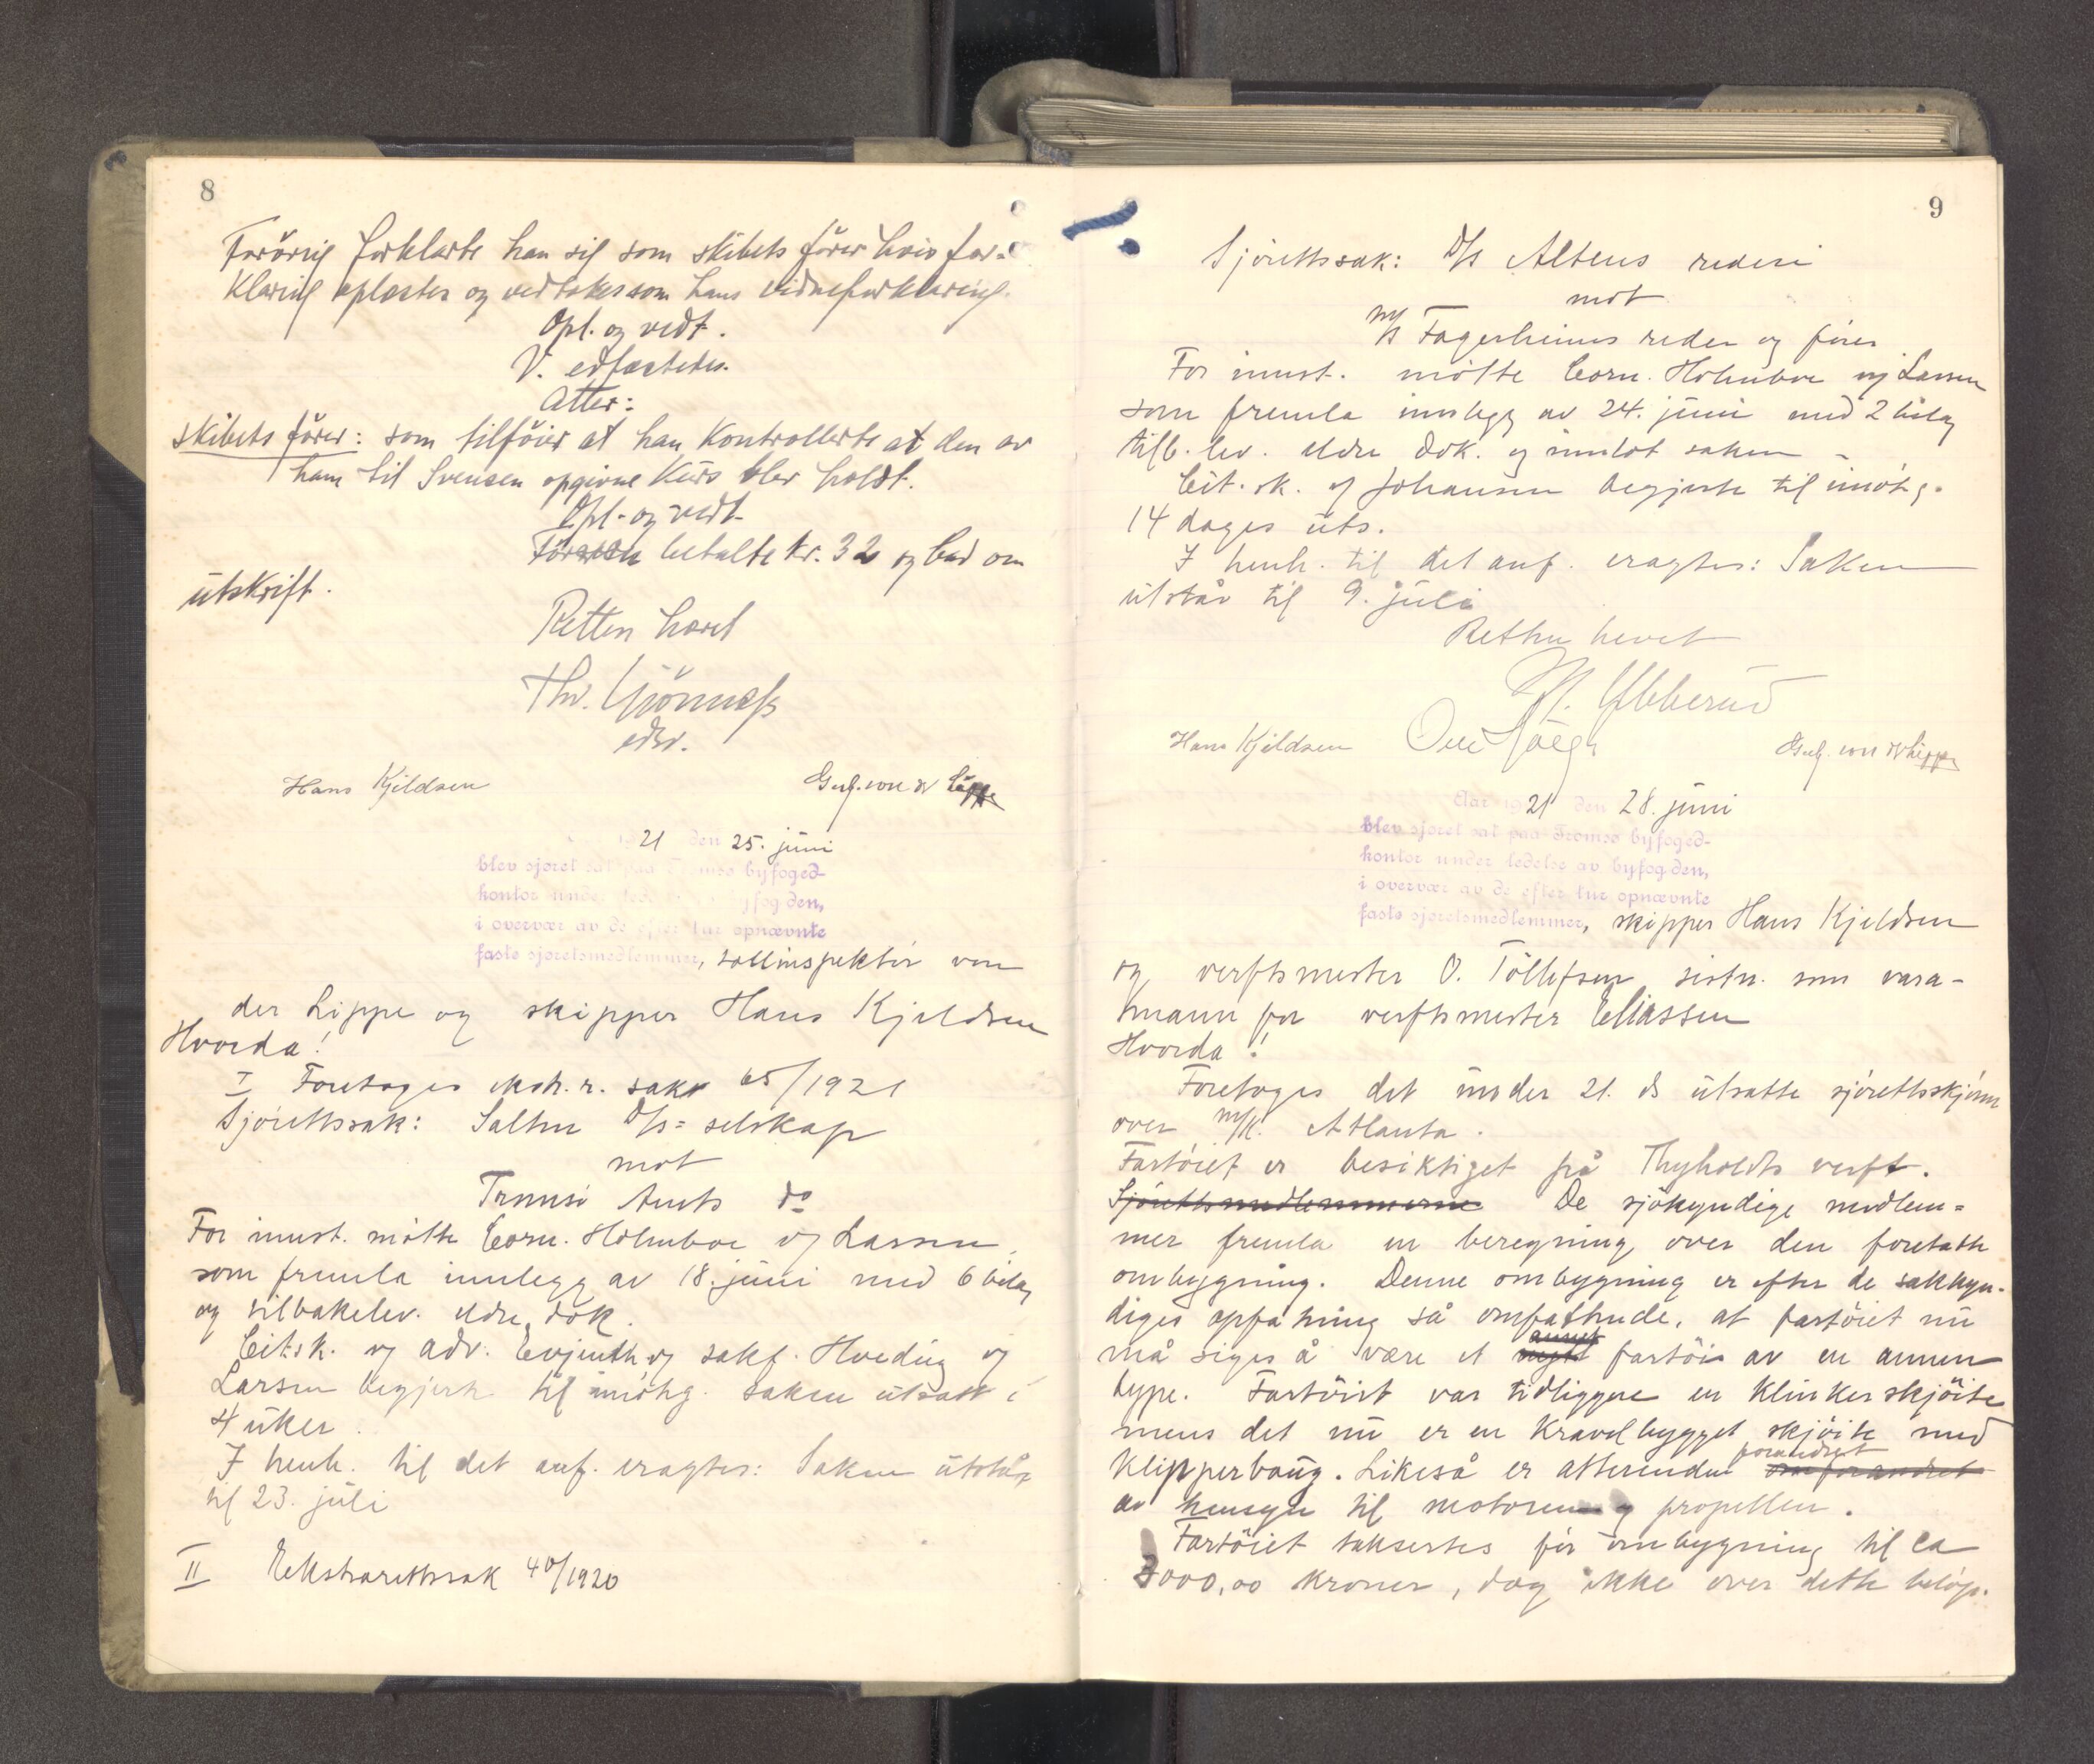 8
Forövrig forklarte han sig som skibets förer hvis for-
klaring oplæstes og vedtokes som hans vidneforklaring.
Opl. og vedt.
V. edfæstedes.
Atter:
Skibets förer: som tilföier at han kontrollerte at den av
ham til Svensen opgivne kurs blev holdt.
Opl. og vedt.
Föreren betalte kr. 32 og bad om
utskrift.
Retten hævet
Thv.
edsv.
Hans Kjeldsen
von d Lippe
1921 den 25. juni
blev sjøret sat paa Tromsø byfoged-
kontor under ledelse av byfogden,
i overvær av de efter tur opnævnte
faste sjøretsmedlemmer, tollinspektör von
der Lippe og skipper Hans Kjeldsen
Hvorda!
I Foretoges ekstr. r. sak 65/1921
Sjörettssak: Salten D/s= selskap
mot
Tromsö Amts do
For innst. mötte Corn. Holmboe og Larsen
som fremla innlegg av 18. juni med 6 bilag
og tilbakelev. eldre dok.
Citsk. og adv. Evjenth og sakf. Hveding og
Larsen begjerte til imötg. saken utsatt i
4 uker.
I henh. til det anf. eragtes: Saken utstår
til 23. juli
II Ekstrarettssak 40/1920
9
Sjörettssak: D/s Altens rederi
mot
M/s Fagerheims reder og förer
For innst. mötte Corn. Holmboe og Larsen
som fremla innlegg av 24. juni med 2 bilag
tilb. lev. eldre dok. og innlot saken -
Cit. sk. og Johansen begjerte til imötg.
14 dages uts.
I henh. til det anf. eragtes: Saken
utstår til 9. juli
Retten hevet
Hans Kjeldsen
von d Lippe
Aar 1921 den 28. juni
blev sjøret sat paa Tromsø byfoged-
kontor under ledelse av byfogden,
i overvær av de efter tur opnævnte
faste sjøretsmedlemmer, skipper Hans Kjeldsen
og verftsmester O. Tollefsen, sistn. som vara-
mann for verftsmester Eliassen
Hvorda!
Foretoges det under 21. ds utsatte sjörettsskjönn
over M/k. Atlanta.
Fartöiet er besiktiget på Thyholdts verft.
Sjörettsmedlemmerne De sjökyndige medlem=
mer fremla en beregning over den foretatte
ombygning. Denne ombygning er efter de sakkyn-
diges opfatning så omfattende, at fartöiet nu
må siges å være et annet fartöi av en annen
type. Fartöiet var tidligere en klinkerskjöite
mens det nu er en kravelbygget skjöite med
klipperbaug. Likeså er atterenden forandret
av hensyn til motoren og propellen.
Fartöiet takseres för ombygning til ca
3000,00 kroner, dog ikke over dette belöp.